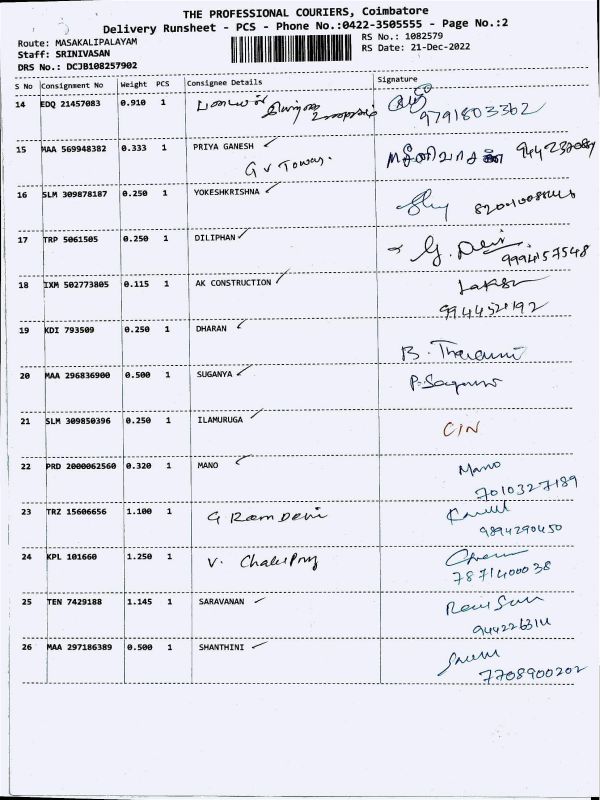 THE PROFESSIONAL COURIERS, Coimbatore
Delivery Runsheet - PCS - Phone No.:0422-3505555 - Page No.:2
Route: MASAKALIPALAYAM
Staff: SRINIVASAN
DRS No.: DCJB108257902
RS No.: 1082579
RS Date: 21-Dec-2022
S No Consignment No Weight PCS Consignee Details Signature
14 EDQ 21457083 0.910 1
9791803362
15 MAA 569948382 0.333 1 PRIYA GANESH
G V Towers.
16 SLM 309878187 0.250 1 YOKESHKRISHNA
17 TRP 5061505 0.250 1 DILIPHAN G. Devi
9994157548
18 IXM 502773805 0.115 1 AK CONSTRUCTION
19 KDI 793509 0.250 1 DHARAN
B.
20 MAA 296836900 0.500 1 SUGANYA
21 SLM 309850396 0.250 1 ILAMURUGA
CIN
22 PRD 2000062560 0.320 1 MANO Mano
7010327189
23 TRZ 15606656 1.100 1 G Ram Devi
9894290450
24 KPL 101660 1.250 1 V.
7871400038
25 TEN 7429188 1.145 1 SARAVANAN
26 MAA 297186389 0.500 1 SHANTHINI
7708900202